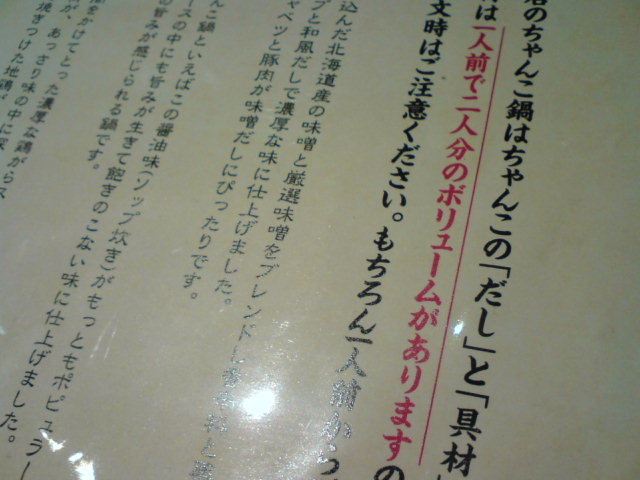 のちゃんこ鍋はちゃんこの「だし」と「具材」
は一人前で二人分のボリュームがありますの
文時はご注意ください。もちろん一人前から
込んだ北海道産の味噌と厳選味噌をブレンドし
プと和風だしで濃厚な味に仕上げました。
ャベツと豚肉が味噌だしにぴったりです。
んこ鍋といえばこの醤油味(ソップ炊き)がもっともポピュラー
ースの中にも旨みが生きて飽きのこない味に仕上げました。
の旨みが感じられる鍋です。
をかけてとった濃厚な鶏がらス
が、あっさり味の中に深
焼きつけた地鶏が